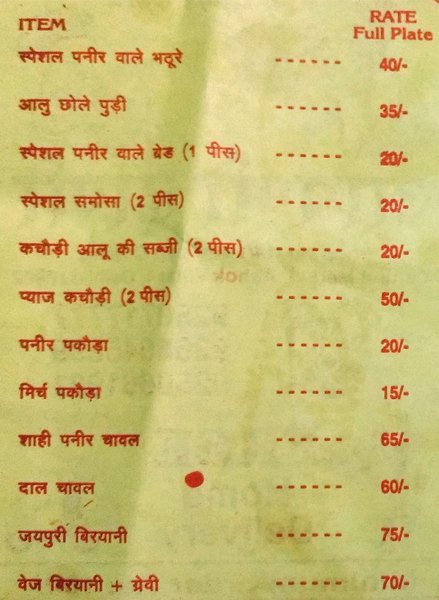 ITEM RATE
Full Plate
स्पेशल पनीर वाले भठूरे ------ 40/-
आलु छोले पुड़ी ------ 35/-
स्पेशल पनीर वाले ब्रेड (1 पीस) ------ 20/-
स्पेशल समोसा (2 पीस) ------ 20/-
कचौड़ी आलू की सब्जी (2 पीस) ------ 20/-
प्याज कचौड़ी (2 पीस) ------ 50/-
पनीर पकौड़ा ------ 20/-
मिर्च पकौड़ा ------ 15/-
शाही पनीर चावल ------ 65/-
दाल चावल ------ 60/-
जयपुरी बिरयानी ------ 75/-
वेज बिरयानी + ग्रेवी ------ 70/-